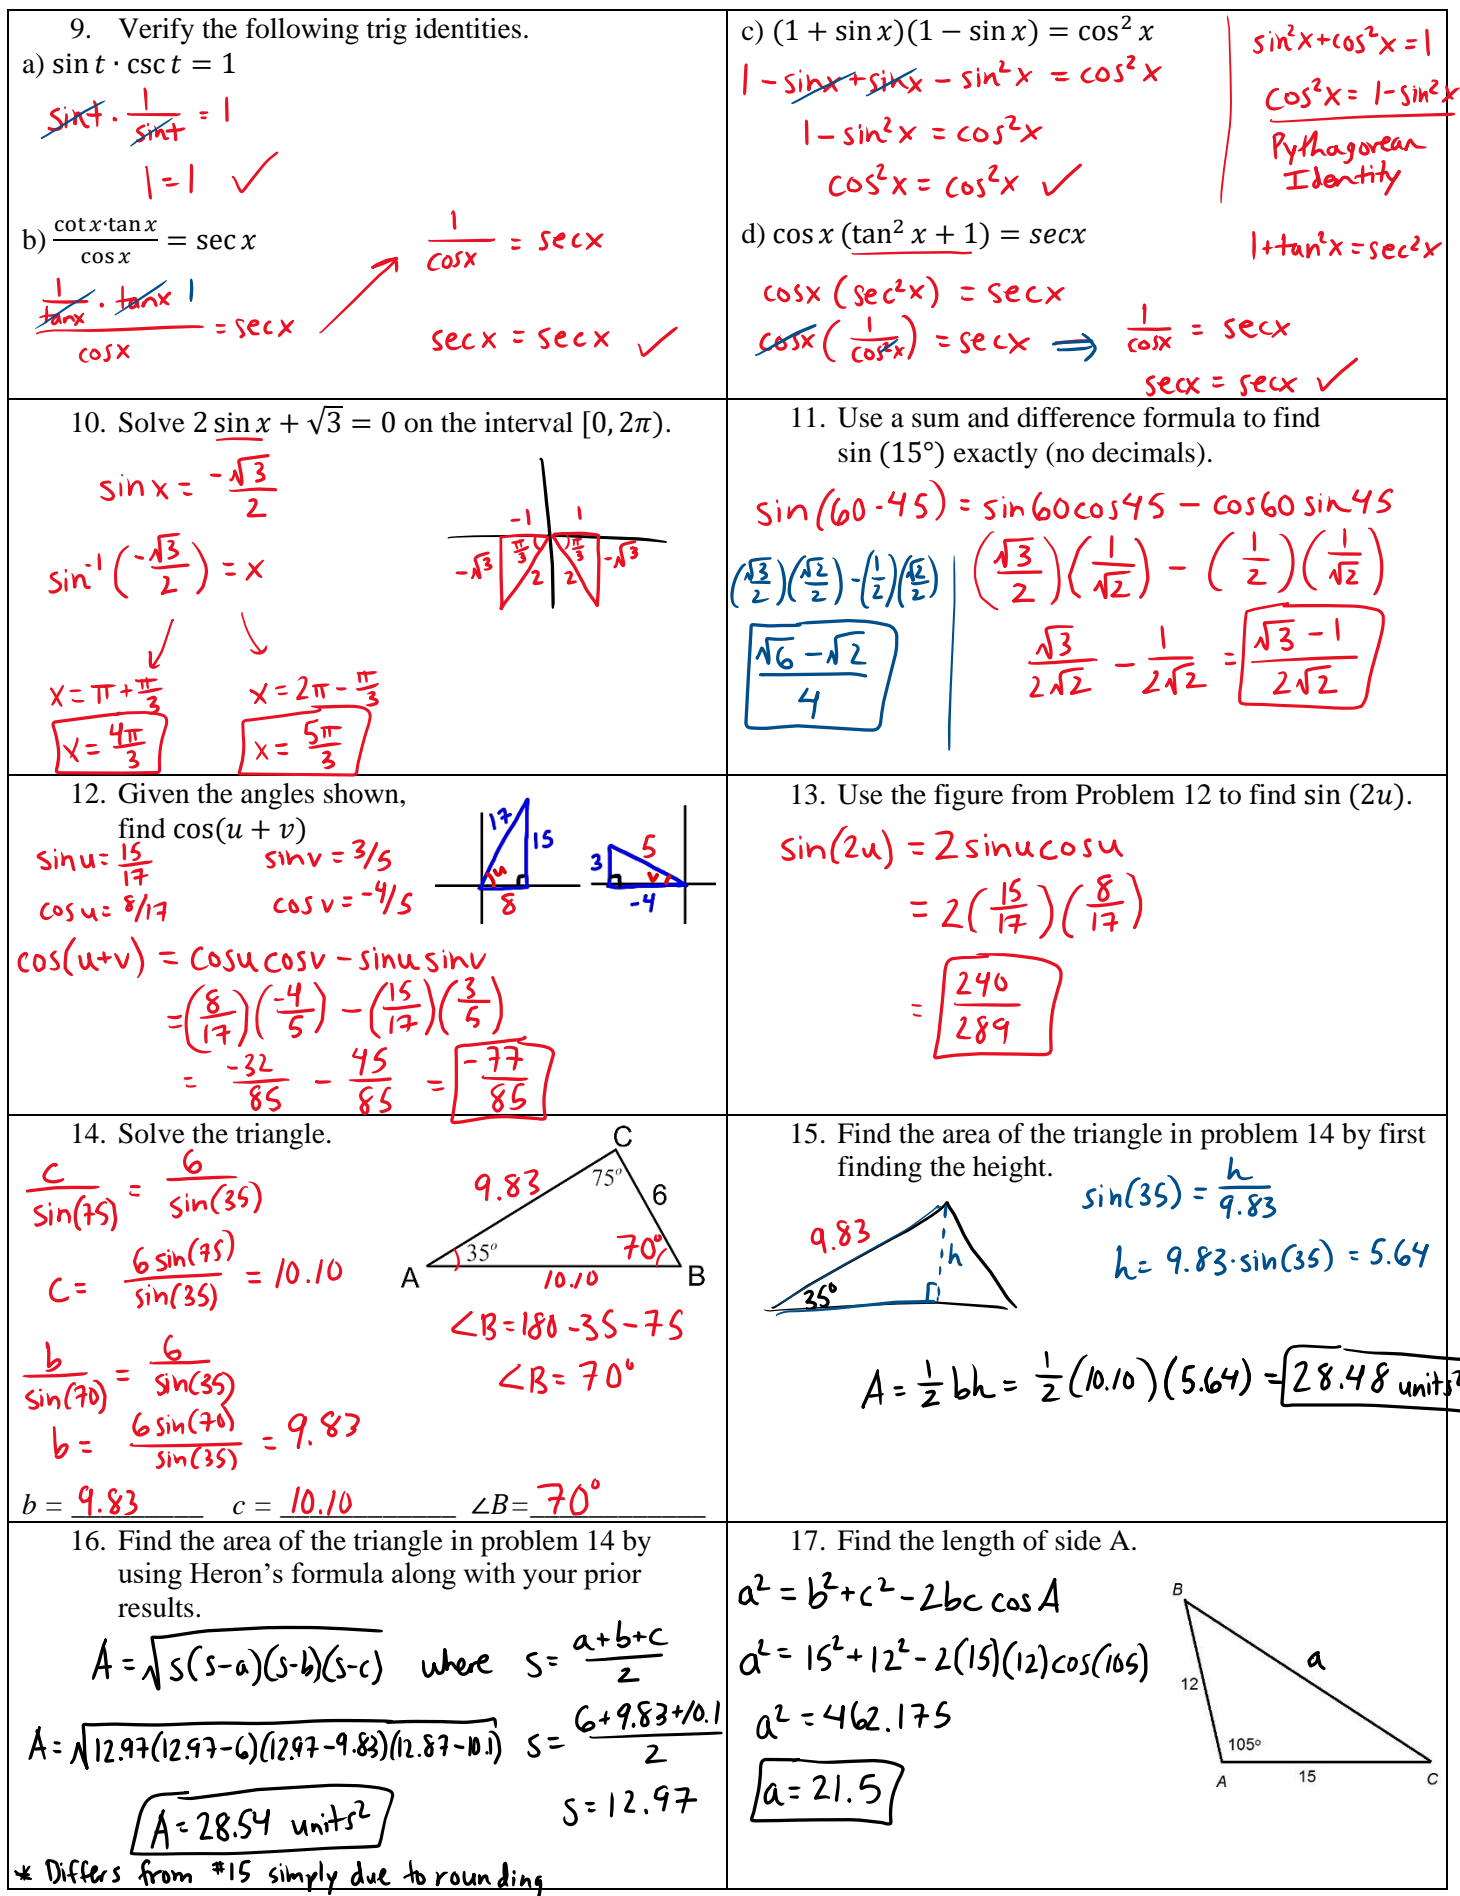 9. Verify the following trig identities.
a) sin t · csc t = 1
sint · 1/sint = 1
1 = 1 ✓
b) (cot x·tan x)/cos x = sec x
(1/tanx · tanx 1)/cosx = secx
1/cosx = secx
secx = secx ✓
c) (1 + sin x)(1 − sin x) = cos² x
1 - sinx + sinx - sin²x = cos²x
1 - sin²x = cos²x
cos²x = cos²x ✓
sin²x+cos²x = 1
cos²x = 1-sin²x
Pythagorean
Identity
d) cos x (tan² x + 1) = secx
1+tan²x = sec²x
cosx (sec²x) = secx
cosx (1/cos²x) = secx ⇒ 1/cosx = secx
secx = secx ✓
10. Solve 2 sin x + √3 = 0 on the interval [0, 2π).
sinx = -√3/2
sin⁻¹(-√3/2) = x
x = π + π/3 x = 2π - π/3
x = 4π/3 x = 5π/3
-1 1
-√3 π/3 π/3 -√3
2 2
11. Use a sum and difference formula to find
sin (15°) exactly (no decimals).
sin(60-45) = sin60cos45 - cos60sin45
(√3/2)(√2/2) - (1/2)(√2/2)
(√6 - √2)/4
(√3/2)(1/√2) - (1/2)(1/√2)
√3/2√2 - 1/2√2 = (√3 - 1)/2√2
12. Given the angles shown,
find cos(u + v)
sinu = 15/17 sinv = 3/5
cosu = 8/17 cosv = -4/5
17 15 u 8
3 5 v -4
cos(u+v) = cosucosv - sinusinv
= (8/17)(-4/5) - (15/17)(3/5)
= -32/85 - 45/85 = -77/85
13. Use the figure from Problem 12 to find sin (2u).
sin(2u) = 2sinucosu
= 2(15/17)(8/17)
= 240/289
14. Solve the triangle.
c/sin(75) = 6/sin(35)
c = 6sin(75)/sin(35) = 10.10
b/sin(70) = 6/sin(35)
b = 6sin(70)/sin(35) = 9.83
C
9.83 75° 6
A 35° 70° B
10.10
∠B = 180 - 35 - 75
∠B = 70°
b = 9.83 c = 10.10 ∠B= 70°
15. Find the area of the triangle in problem 14 by first
finding the height.
sin(35) = h/9.83
h = 9.83·sin(35) = 5.64
9.83 h
35°
A = 1/2 bh = 1/2 (10.10)(5.64) = 28.48 units²
16. Find the area of the triangle in problem 14 by
using Heron's formula along with your prior
results.
A = √s(s-a)(s-b)(s-c) where s = (a+b+c)/2
A = √12.97(12.97-6)(12.97-9.83)(12.87-10.1) s = (6+9.83+10.1)/2
s = 12.97
A = 28.54 units²
* Differs from #15 simply due to rounding
17. Find the length of side A.
a² = b²+c² - 2bc cos A
a² = 15² + 12² - 2(15)(12)cos(105)
a² = 462.175
a = 21.5
B
a
12
105°
A 15 C